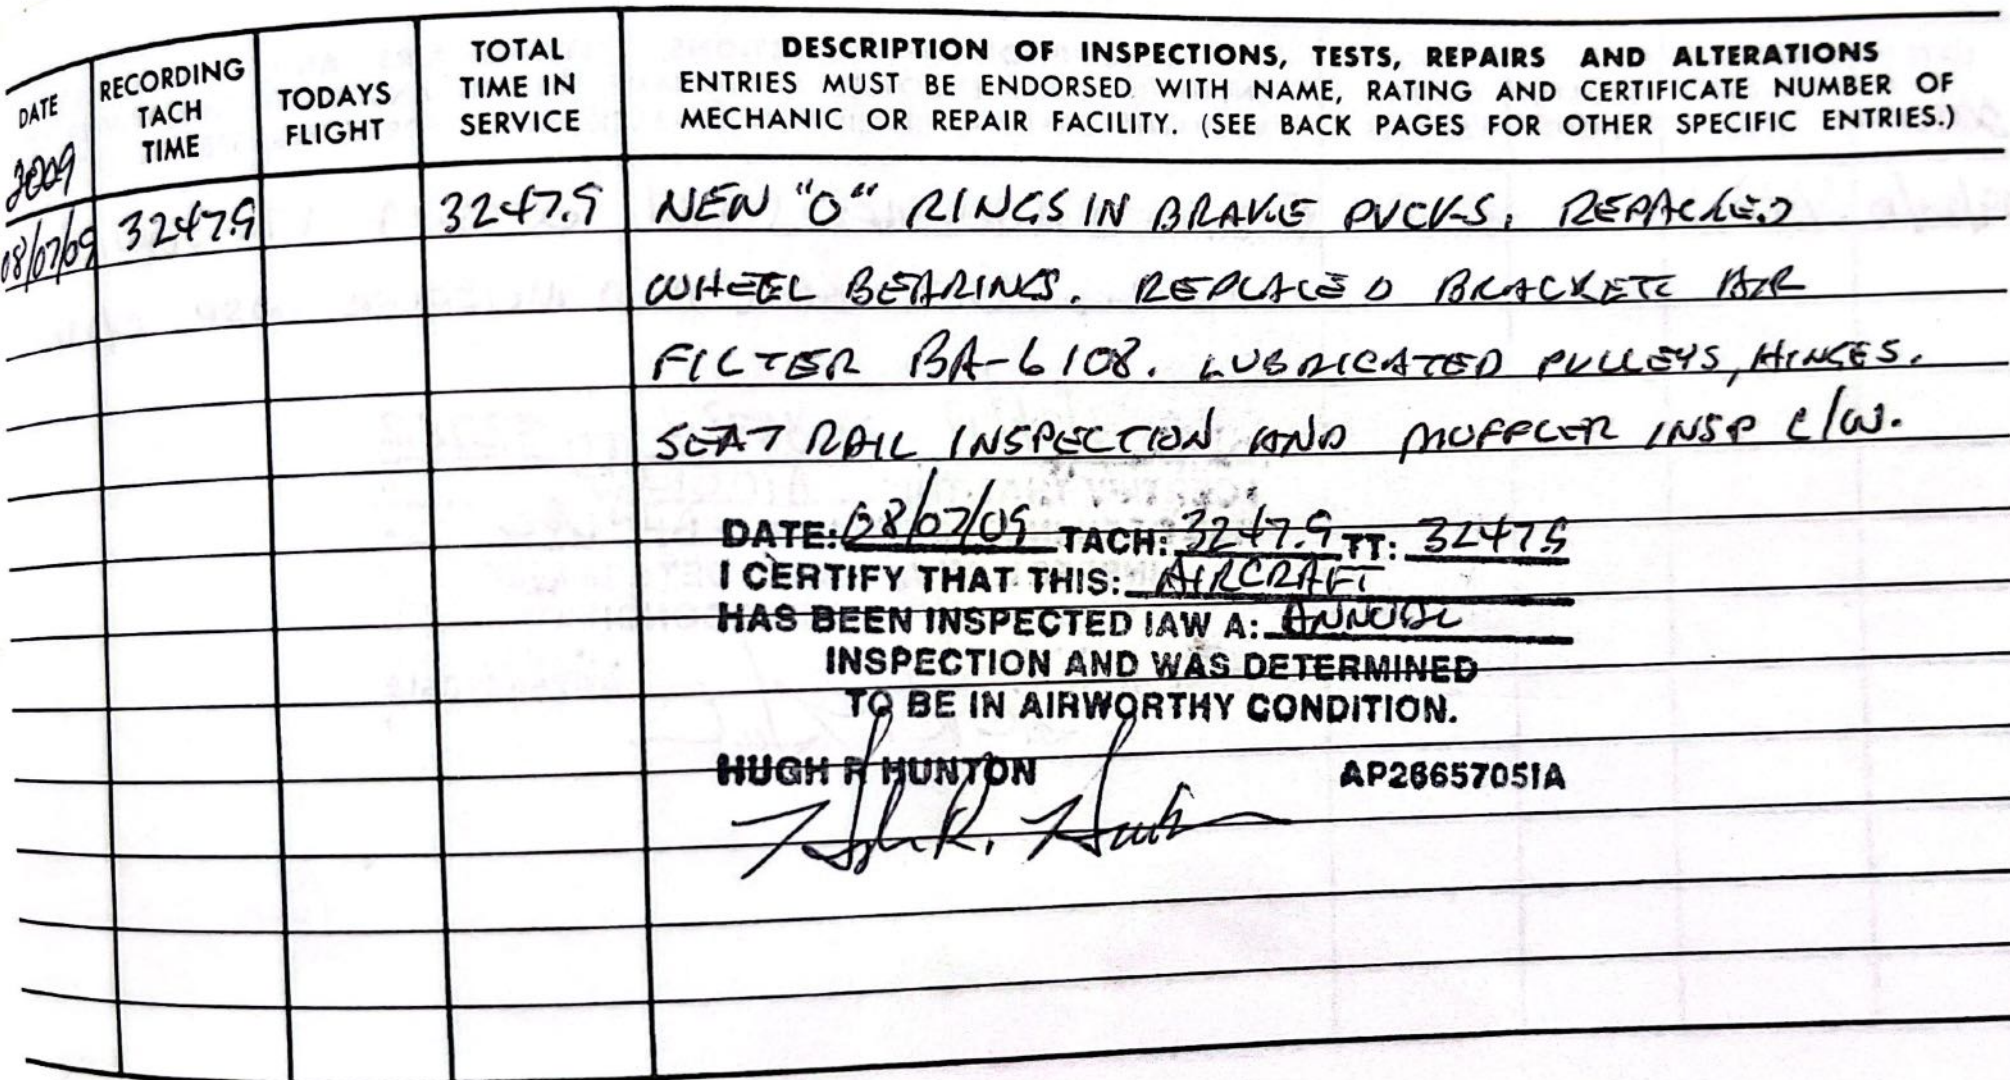 DATE
2009
RECORDING
TACH
TIME
TODAYS
FLIGHT
TOTAL
TIME IN
SERVICE
DESCRIPTION OF INSPECTIONS, TESTS, REPAIRS AND ALTERATIONS
ENTRIES MUST BE ENDORSED WITH NAME, RATING AND CERTIFICATE NUMBER OF
MECHANIC OR REPAIR FACILITY. (SEE BACK PAGES FOR OTHER SPECIFIC ENTRIES.)
08/07/09 3247.9 3247.9 NEW "O" RINGS IN BRAKE PUCKS. REPACKED
WHEEL BEARINGS. REPLACED BRACKETT AIR
FILTER BA-6108. LUBRICATED PULLEYS, HINGES.
SEAT RAIL INSPECTION AND MUFFLER INSP C/W.
DATE: 08/07/09 TACH: 3247.9 TT: 3247.9
I CERTIFY THAT THIS: AIRCRAFT
HAS BEEN INSPECTED IAW A: ANNUAL
INSPECTION AND WAS DETERMINED
TO BE IN AIRWORTHY CONDITION.
HUGH R HUNTON AP2665705IA
Hugh R. Hunton